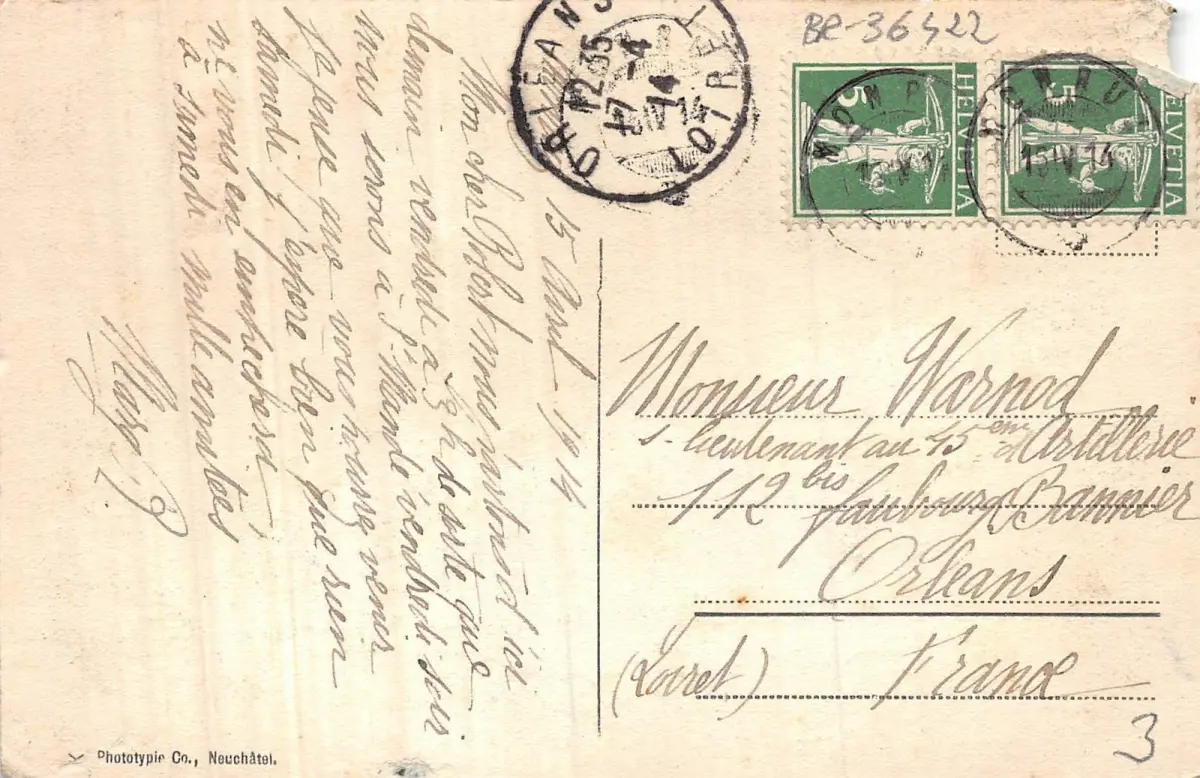 BR-36422
ORLEANS
12 35
17 -4
14
LOIRET
HELVETIA
5
HELVETIA
5
15 IV 14
15 Avril 1914
Mon cher Robert nous partons d'ici
demain vendredi à 3 h de sorte que
nous serons à St Mandé vendredi soir
Je pense que vous pourrez venir
samedi j'espère bien que rien
ne vous en empechera
à samedi mille amitiés
Marg.
Monsieur Warnod
s-lieutenant au 45ème d'Artillerie
112 bis faubourg Bannier
Orléans
(Loiret) France
3
Phototypie Co., Neuchâtel.